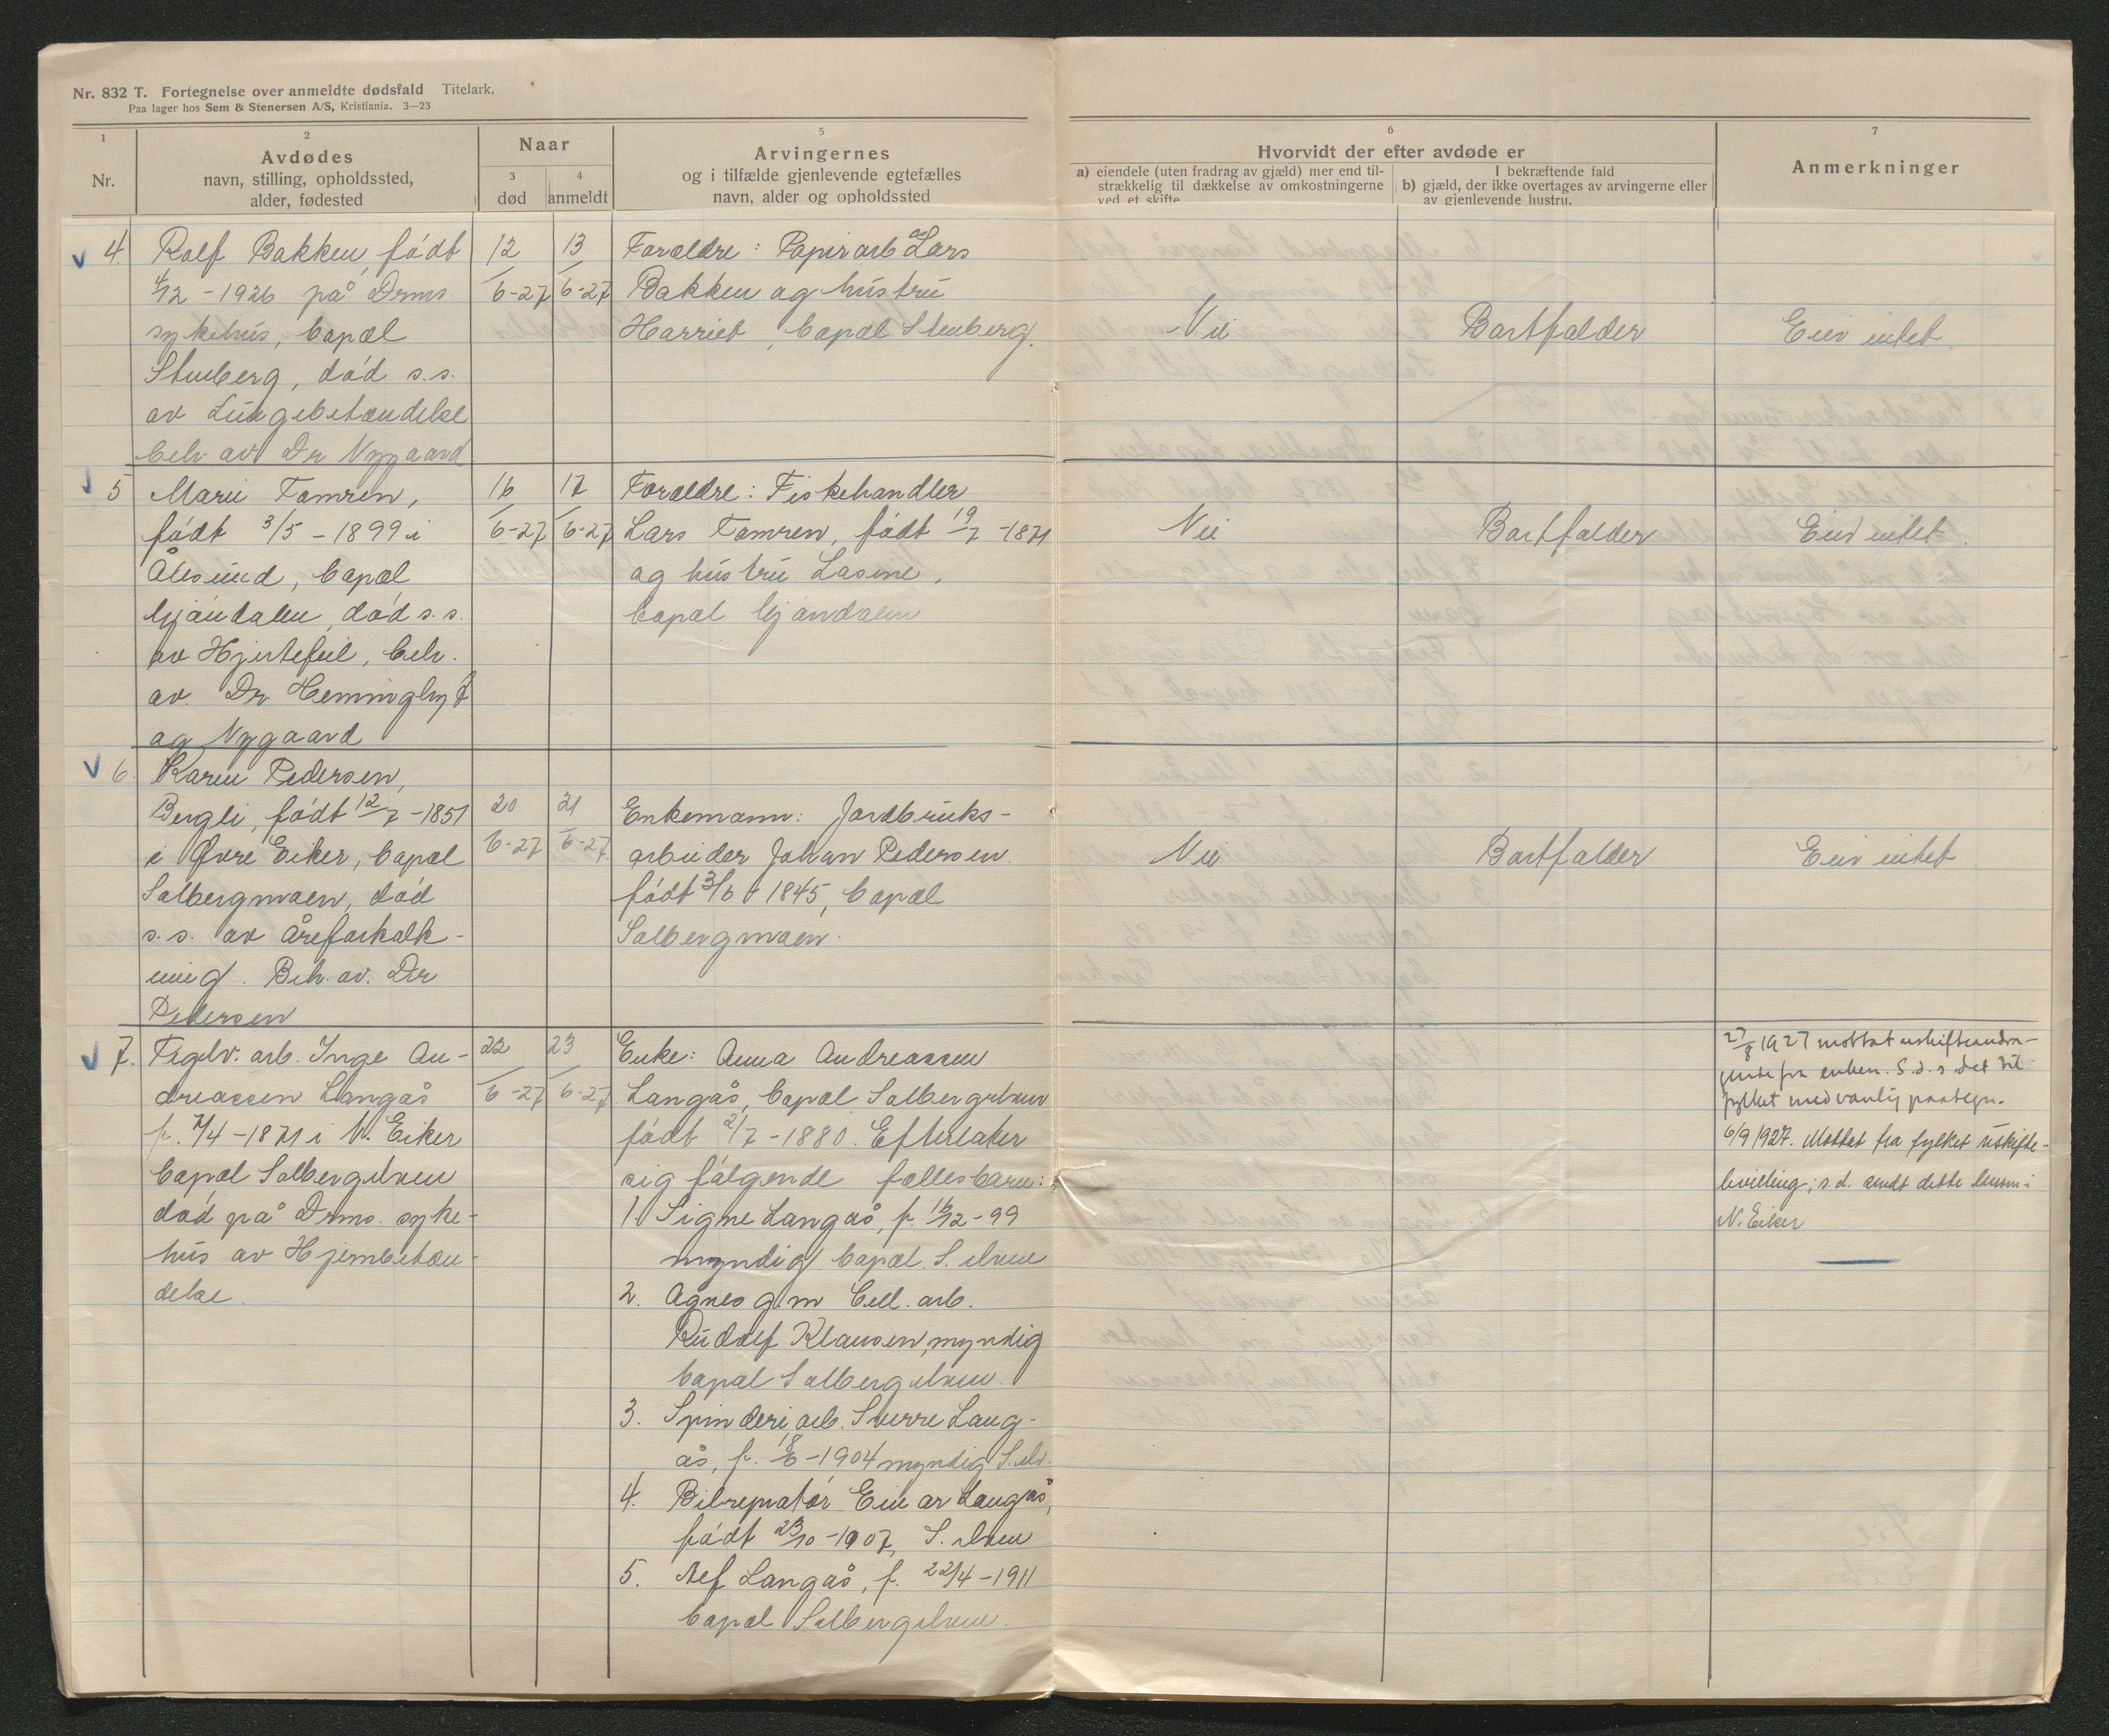 Nr. 832 T. Fortegnelse over anmeldte dødsfald Titelark.
Paa lager hos Sem & Stenersen A/S, Kristiania. 3—23
1
Nr.
2
Avdødes
navn, stilling, opholdssted,
alder, fødested
Naar
3
død
4
anmeldt
5
Arvingernes
og i tilfælde gjenlevende egtefælles
navn, alder og opholdssted
6
Hvorvidt der efter avdøde er
a) eiendele (uten fradrag av gjæld) mer end til-
strækkelig til dækkelse av omkostningerne
ved et skifte.
I bekræftende fald
b) gjæld, der ikke overtages av arvingerne eller
av gjenlevende hustru.
7
Anmerkninger
4. Rolf Bakken, født
4/12 - 1926 på Drms.
sykehus, bopæl
Stenberg, død s.s.
av Lungebetændelse
beh. av Dr Nygaard
12/6-27
13/6-27
Forældre: Papirarb. Lars
Bakken og hustru
Harriet, bopæl Stenberg.
Nei
Bortfalder
Eier intet.
5 Marie Tamren,
født 3/5 - 1899 i
Ålesund, bopæl
Mjøndalen, død s.s.
av Hjertefeil, beh.
av. Dr. Hemminghyt
og Nygaard
16/6-27
17/6-27
Forældre: Fiskehandler
Lars Tamren, født 19/7 -1871
og hustru Lasine,
bopæl Mjøndalen
Nei
Bortfalder
Eier intet.
6. Karen Pedersen,
Bergli, født 12/7 -1851
i Øvre Eiker, bopæl
Solbergmoen, død
s.s. av åreforkalk-
ning. Beh. av. Dr
Pedersen
20/6-27
21/6-27
Enkemann: Jordbruks-
arbeider Johan Pedersen
født 3/6 - 1845, bopæl
Solbergmoen.
Nei
Bortfalder
Eier intet.
7. Teglv. arb. Inge An-
dreassen Langås
f. 7/4 -1871 i N. Eiker
bopæl Solbergelven
død på Drms. syke-
hus av Hjernebetæn-
delse.
22/6-27
23/6-27
Enke: Anna Andreassen
Langås, bopæl Solbergelven
født 2/7 -1880. Efterlater
sig følgende fællesbarn:
1. Signe Langås, f. 16/12 - 99
myndig bopæl. S. elven
2. Agnes g.m Cell. arb.
Rudolf Klausen, myndig
bopæl Solbergelven.
3. Spinderi arb. Sverre Lang-
ås, f. 18/6 -1904 myndig S. elv.
4. Bilreparatør Einar Langås,
født 23/10 -1907, S. elven
5. Alf Langås, f. 22/4 -1911
bopæl Solbergelven.
27/8 1927 mottat uskifteandra-
gende fra enken. S.d. s. det til
fylket med vanlig paategn.
6/9 1927. Mottat fra fylket uskifte-
bevilling; s.d. sendt dette lensm. i
N. Eiker